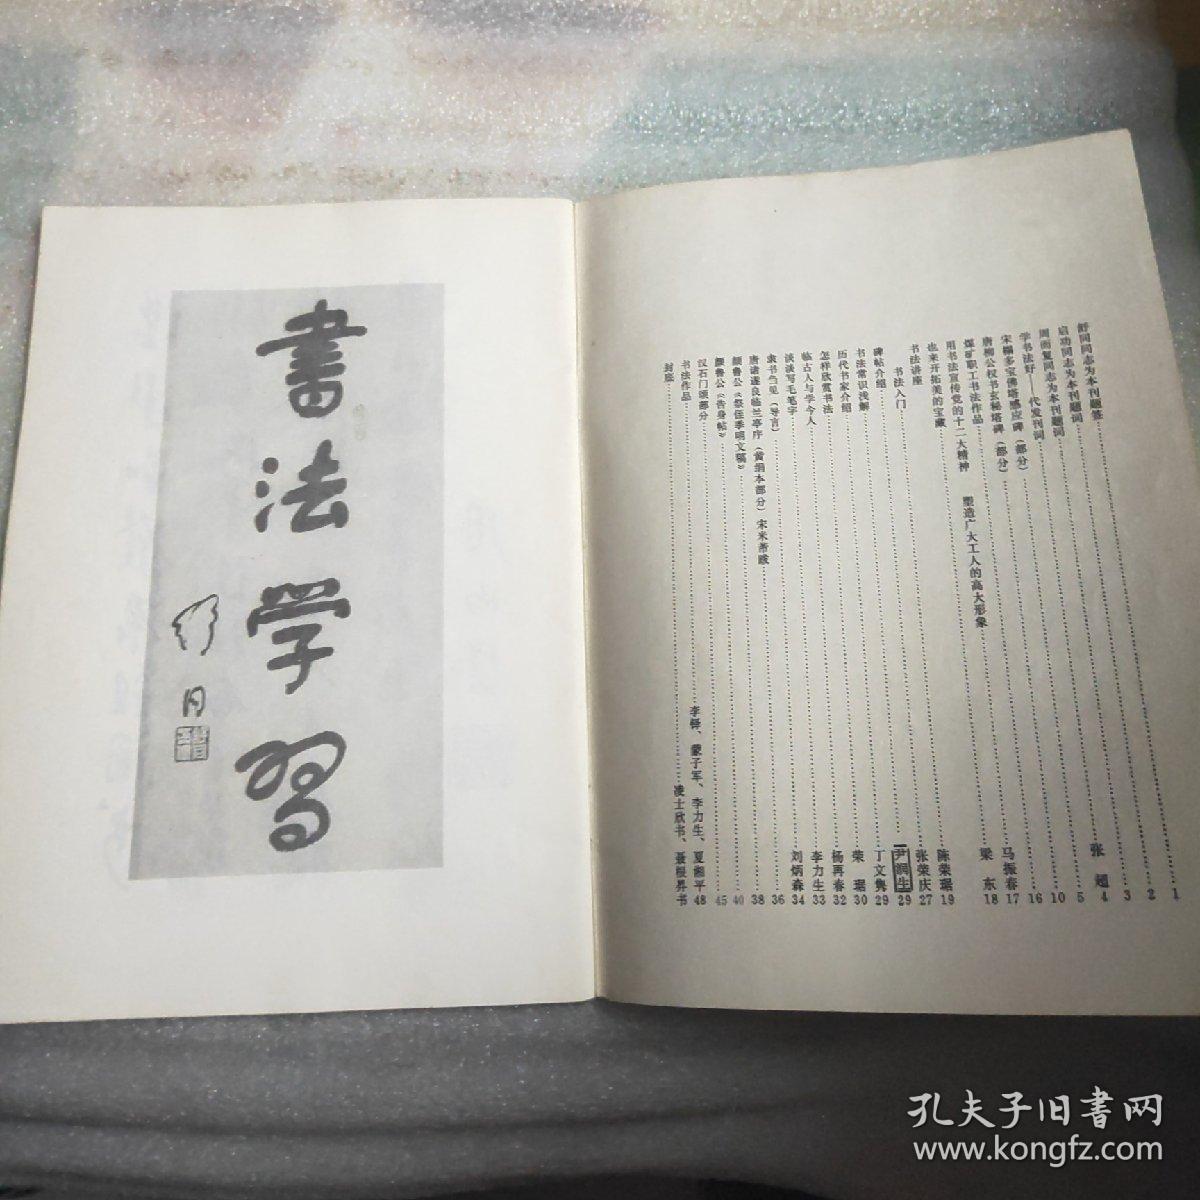 書法学習
舒同
舒同同志为本刊题签 1
启功同志为本刊题词 2
周而复同志为本刊题词 3
学书法好——代发刊词 张超 4
宋榻多宝佛塔感应碑(部分) 5
唐柳公权书玄秘塔碑(部分) 10
煤矿职工书法作品 16
用书法宣传党的十二大精神 塑造广大工人的高大形象 马振春 17
也来开拓美的宝藏 梁东 18
书法讲座 陈荣琚 19
张荣庆 27
书法入门 尹润生 29
碑帖介绍 丁文隽 29
书法常识浅解 荣琚 30
历代书家介绍 杨再春 32
怎样欣赏书法 李力生 33
临古人与学今人 刘炳森 34
谈谈写毛笔字 36
隶书刍见(导言)
唐诸遂良临兰亭序(黄绢本部分)宋米芾跋 38
颜鲁公《祭侄季明文稿》 40
颜鲁公《告身帖》 45
汉石门颂部分
书法作品 李铎、蒙子军、李力生、夏湘平 48
封底 凌士欣书、聂根昇书
孔夫子旧書网
www.kongfz.com